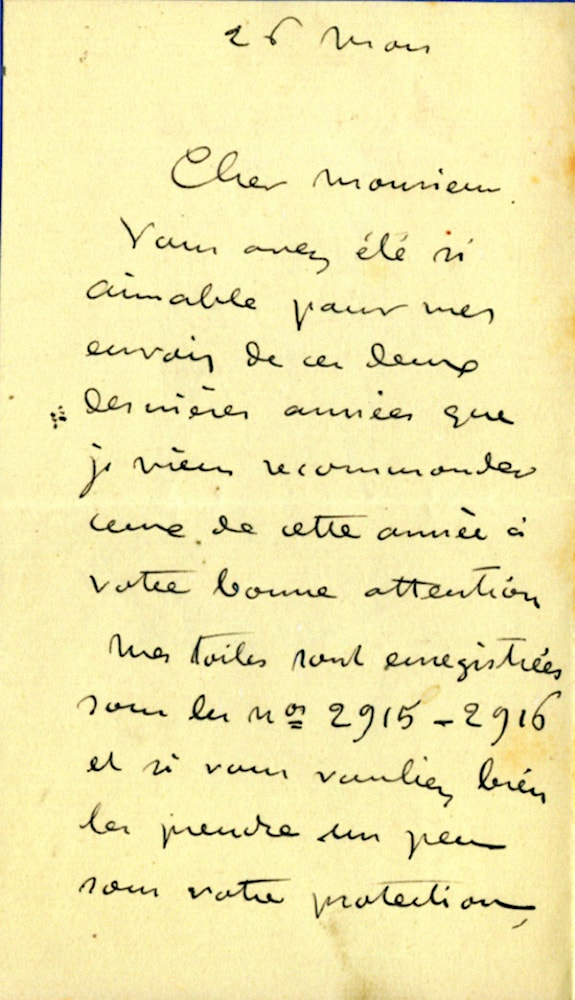 26 mars
Cher monsieur.
Vous avez été si
aimable pour mes
envois de ces deux
dernières années que
je viens recommander
ceux de cette année à
votre bonne attention
Mes toiles sont enregistrées
sous les nos 2915 - 2916
et si vous vouliez bien
les prendre un peu
sous votre protection,